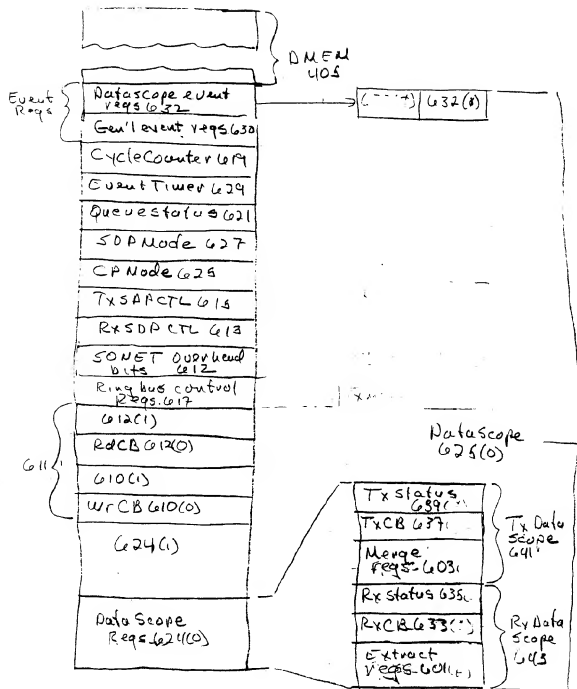 DMEM
405
Event
Regs
Datascope event
regs 632
632(i)
Gen'l event regs 630
CycleCounter 619
Event Timer 629
Queue status 621
SDP Mode 627
CP Mode 625
Tx SDP CTL 615
Rx SDP CTL 613
SONET Overhead
bits 612
Ring bus control
Regs. 617
612(1)
RdCB 612(0)
611
610(1)
WrCB 610(0)
624(1)
Data Scope
Regs 624(0)
DataScope
625(0)
Tx status
639
TxCB 637
Merge
regs 603
Tx Data
Scope
641
Rx status 635
RxCB 633
Extract
regs 601
Rx Data
Scope
643